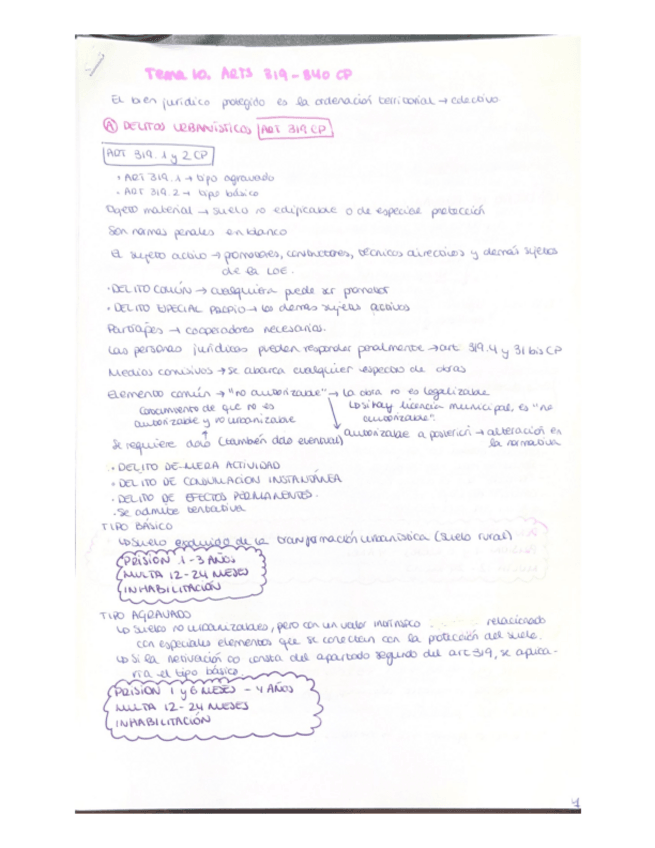 Tema 10. ARTS 319-340 CP
El bien jurídico protegido es la ordenación territorial → colectivo
Ⓐ DELITOS URBANÍSTICOS ART 319 CP
ART 319.1 y 2 CP
· ART 319.1 → tipo agravado
· ART 319.2 → tipo básico
Objeto material → suelo no edificable o de especial protección
Son normas penales en blanco
El sujeto activo → promotores, constructores, técnicos directores y demás sujetos
de la LOE.
· DELITO COMÚN → cualquiera puede ser promotor
· DELITO ESPECIAL PROPIO → los demás sujetos activos
Partícipes → cooperadores necesarios.
Las personas jurídicas pueden responder penalmente → art. 319.4 y 31 bis CP
Medios comisivos → se abarca cualquier especie de obras
Elemento común → "no autorizable" → la obra no es legalizable
Conocimiento de que no es
autorizable y no urbanizable
↳ si hay licencia municipal, es "no
autorizable".
autorizable a posteriori → alteración en
la normativa
Se requiere dolo (también dolo eventual)
· DELITO DE MERA ACTIVIDAD
· DELITO DE CONSUMACIÓN INSTANTÁNEA
· DELITO DE EFECTOS PERMANENTES.
· Se admite tentativa
TIPO BÁSICO
↳ Suelo excluido de la transformación urbanística (suelo rural)
PRISIÓN 1-3 AÑOS
MULTA 12-24 MESES
INHABILITACIÓN
TIPO AGRAVADO
↳ Suelos no urbanizables, pero con un valor intrínseco relacionado
con especiales elementos que se conectan con la protección del suelo.
↳ Si la motivación no consta del apartado segundo del art 319, se aplica-
ría el tipo básico.
PRISIÓN 1 y 6 MESES - 4 AÑOS
MULTA 12-24 MESES
INHABILITACIÓN